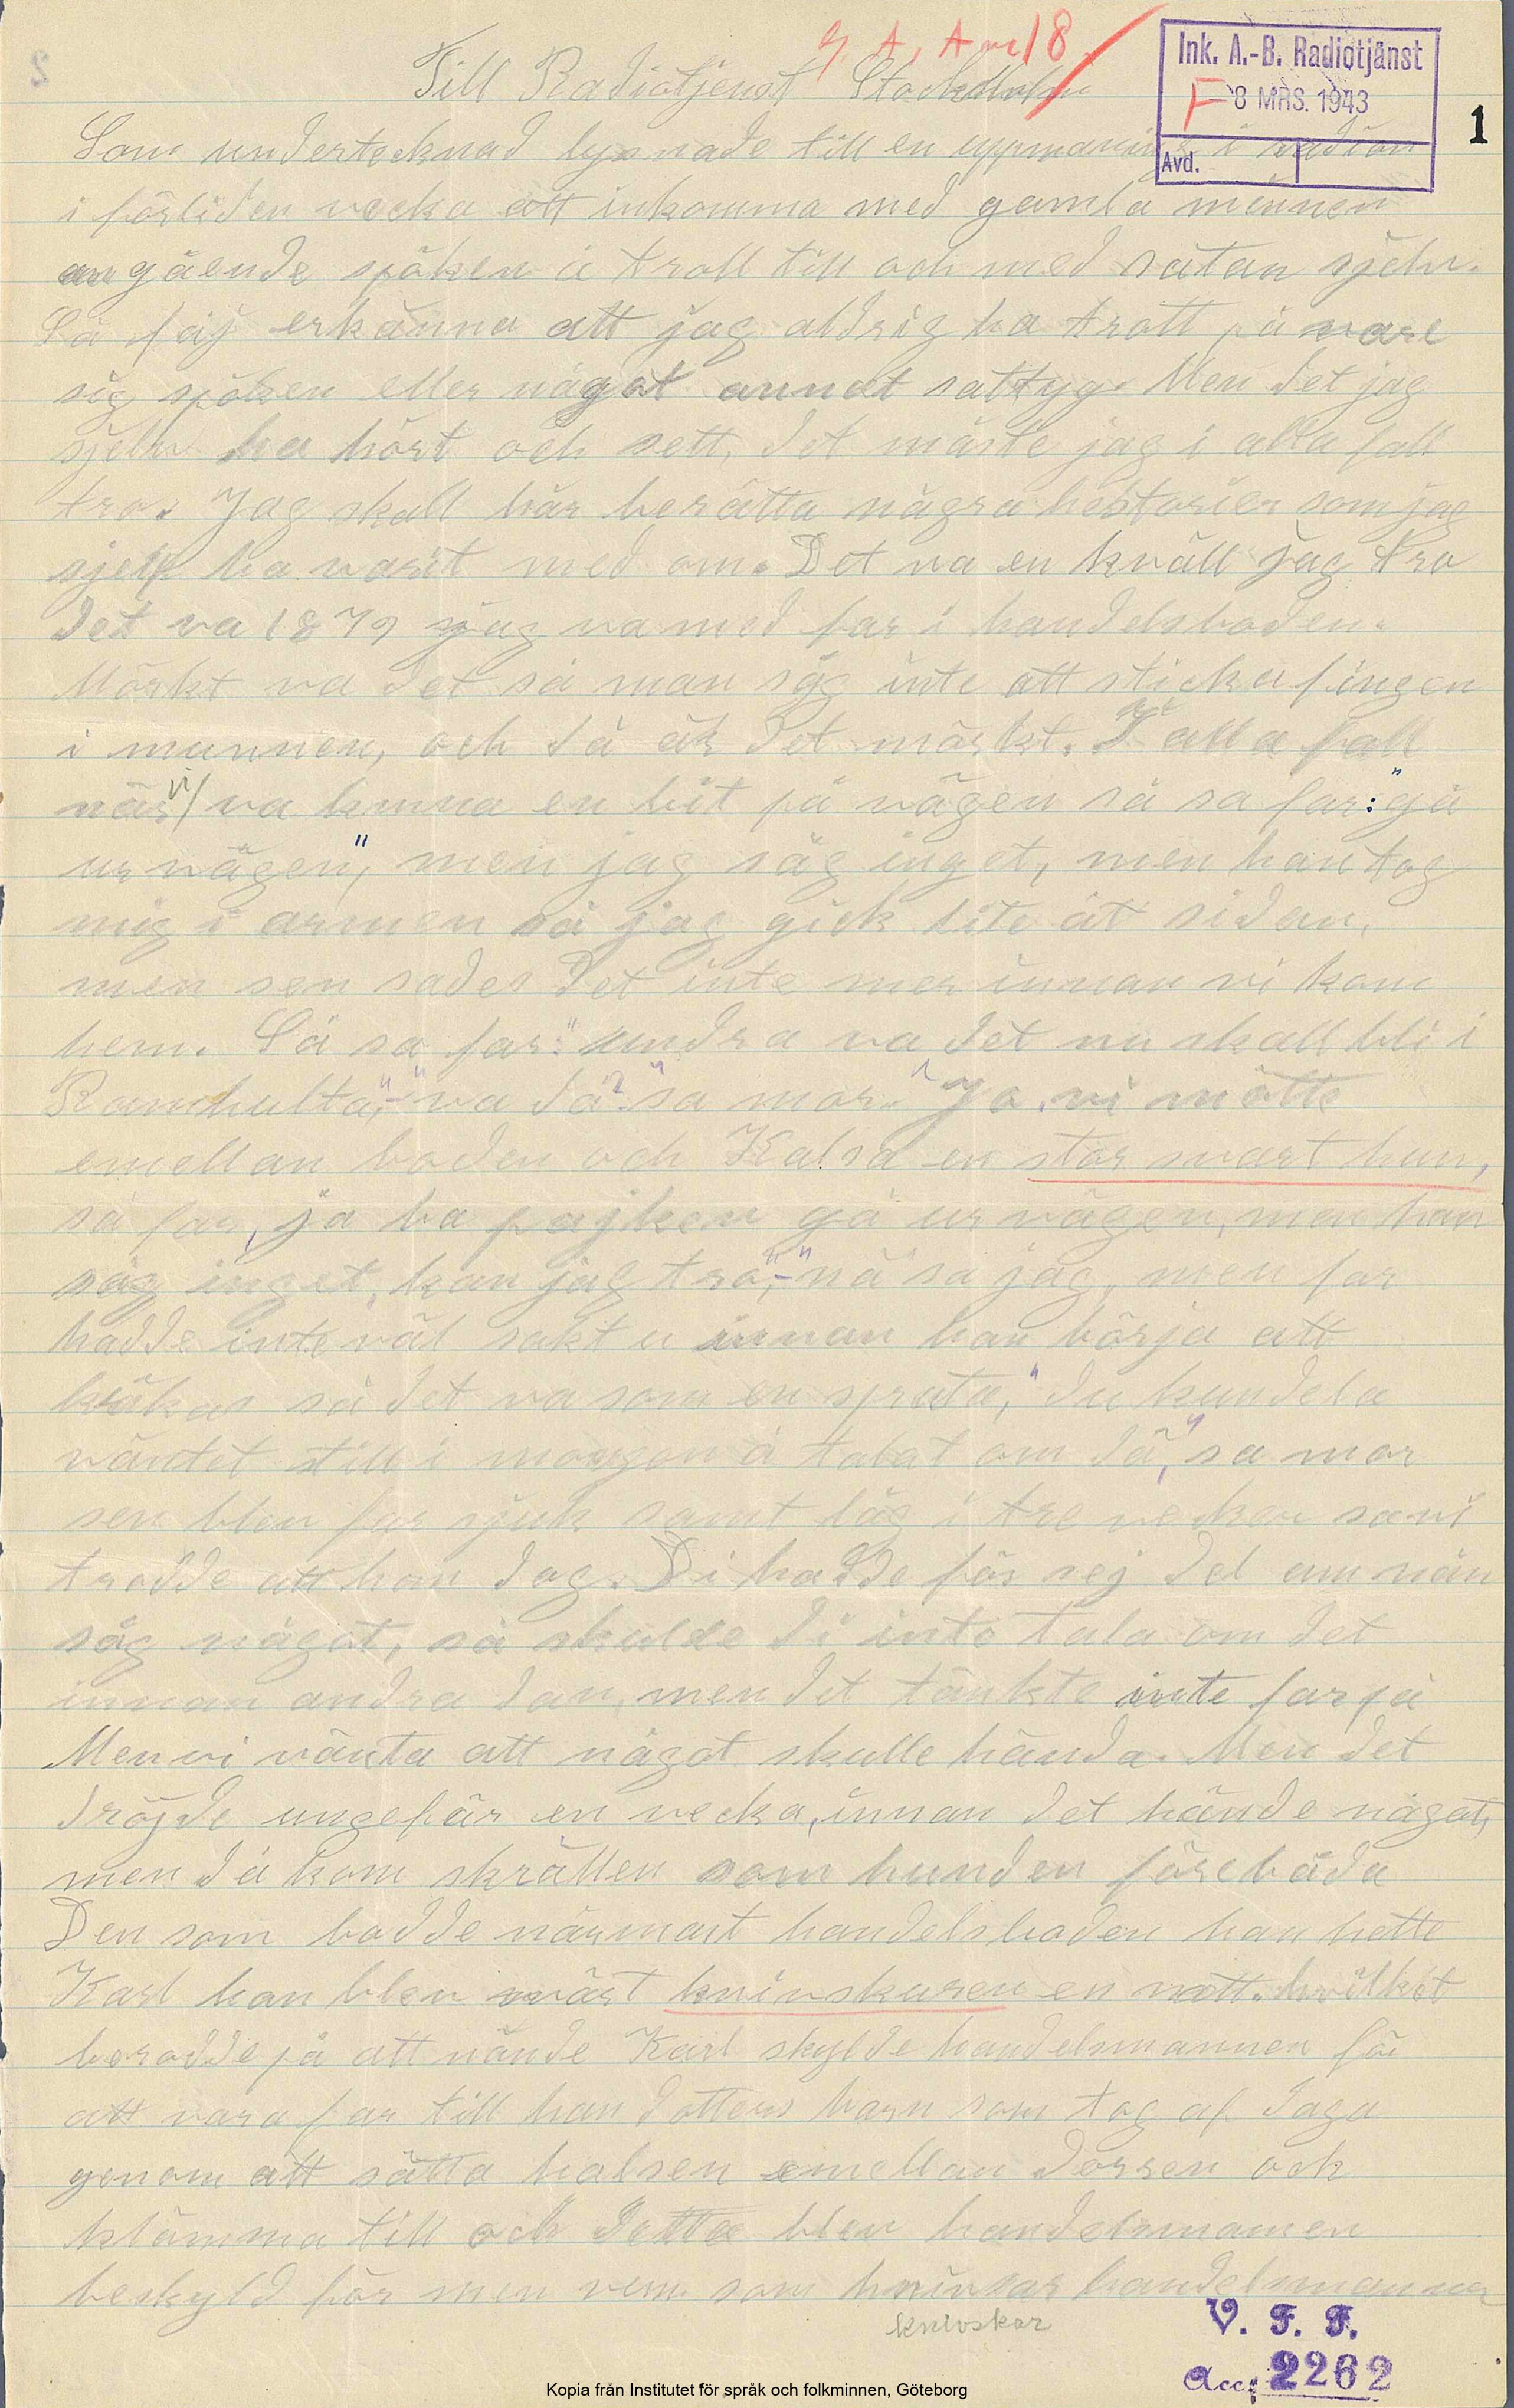 Till Radiotjenst Stockholm
Ink. A.-B. Radiotjänst
F 8 MRS. 1943
Avd.
1
Som undertecknad lyssnade till en uppmaning i radion
i förliden vecka att inkomma med gamla minnen
angående spöken å troll till och med satan sjelv.
Så får erkänna att jag aldrig ha trott på vare
sig spöken eller något annat sattyg. Men det jag
sjelv ha hört och sett, det måste jag i alla fall
tro. Jag skall här berätta några historier som jag
sjelf ha varit med om. Det va en kväll jag tro
det va 1879 jag va med far i handelsboden.
Mörkt va det så man såg inte att sticka fingen
i munnen, och då är det mörkt. I alla fall
när vi va komna en bit på vägen så sa far: "gå
ur vägen", men jag såg inget, men han tog
mig i armen så jag gick lite åt sidan,
men sen sades det inte mer innan vi kom
hem. Så sa far: "undra va det nu skall bli i
Ramhulta",- "va då?" sa mor. "Jo, vi mötte
emellan boden och Kalsa en stor svart hun,
sa far, ja ba pojken gå ur vägen, men han
såg inget, kan jag tro",- "nä" sa jag, men far
hadde inte väl sakt u innan han börja att
kräkas så det va som en spruta, "du kunde la
väntet till i morgon å talat om då", sa mor
sen blev far sjuk samt låg i tre veckor samt
trodde att han dog. Di hadde för sej det om nån
såg något, så skulle di inte tala om det
innan andra dan, men det tänkte inte far på
Men vi vänta att något skulle hända. Men det
dröjde ungefär en vecka, innan det hände något,
men då kom skrällen som hunden förebåda
Den som bodde närmast handelsboden han hette
Karl han blev svårt knivskuren en natt. hvilket
berodde på att nände Karl skylde handelsmannen för
att vara far till han dotters barn som tog af daga
genom att sätta halsen emellan dörren och
klämma till och detta blev handelsmannen
beskyld för men vem som knivsar handelsmannen
knivskar
V. F. F.
Acc. 2262
Kopia från Institutet för språk och folkminnen, Göteborg